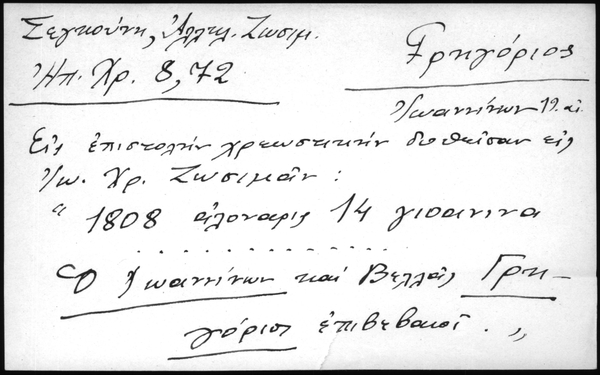 Σεγκούνη, Ἀλληλ. Ζωσιμ.
Ἠπ. Χρ. 8, 72
Γρηγόριος
Ἰωαννίνων 19. αἰ.
Εἰς ἐπιστολὴν χρεωστικὴν δοθεῖσαν εἰς
Ἰω. Χρ. Ζωσιμᾶν :
" 1808 αλοναρις 14 γιοανινα
. . . . . . . . . . . . .
Ὁ Ἰωαννίνων καὶ Βελλᾶς Γρη-
γόριος ἐπιβεβαιοῖ . "